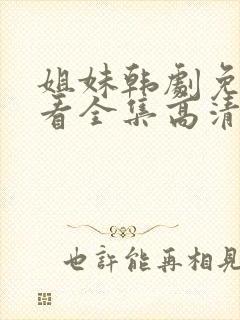 姐妹韩劇免
看全集高清
也許能再相見